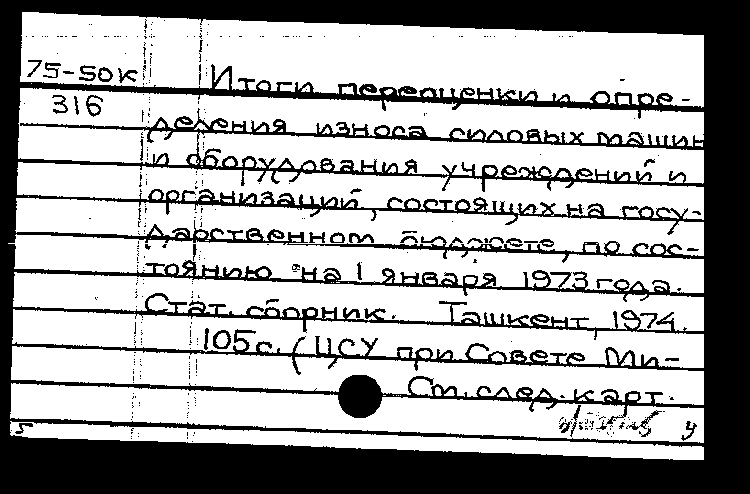 75-50к Итоги переоценки и опре-
316
деления износа силовых машин
и оборудования учреждений и
организаций, состоящих на госу-
дарственном бюджете, по сос-
тоянию на 1 января 1973 года.
Стат. сборник. Ташкент, 1974.
105с. (ЦСУ при Совете Ми-
См. след. карт.
5 у